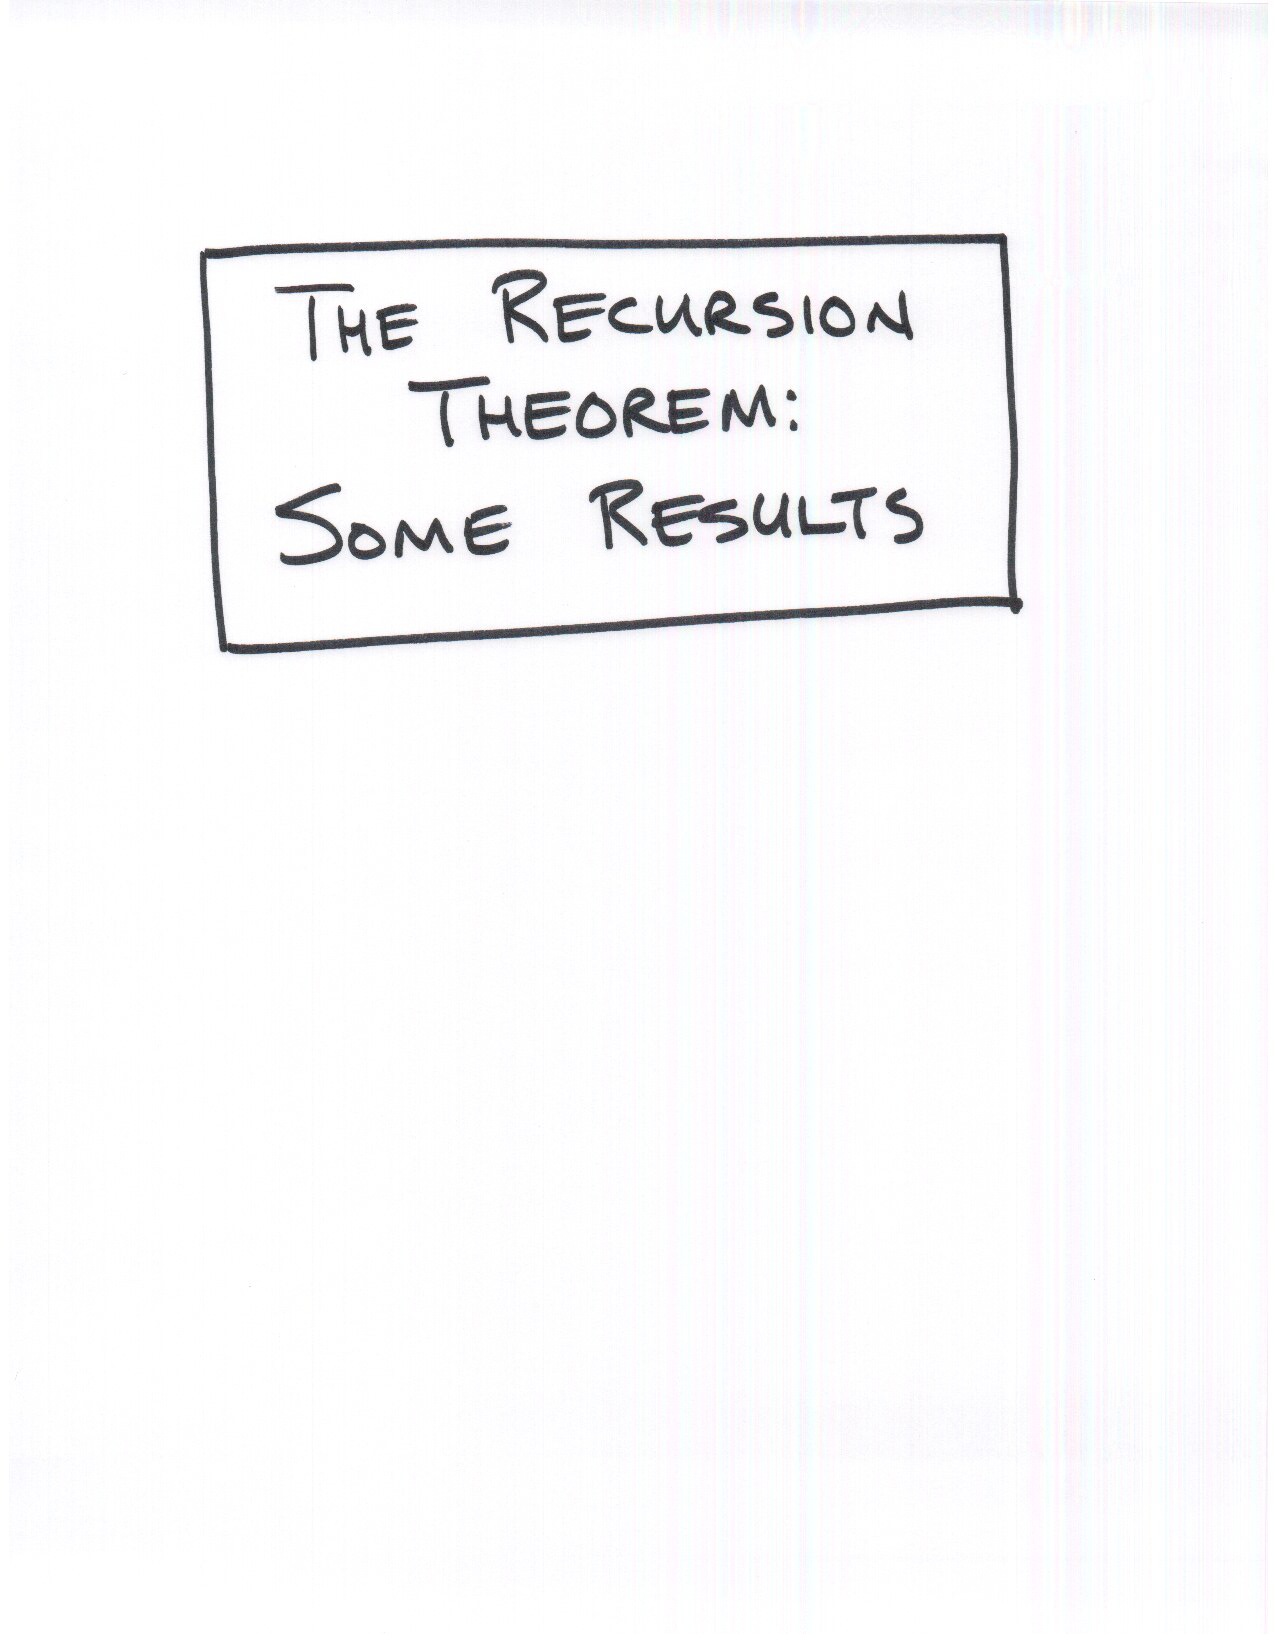 THE RECURSION
THEOREM:
SOME RESULTS